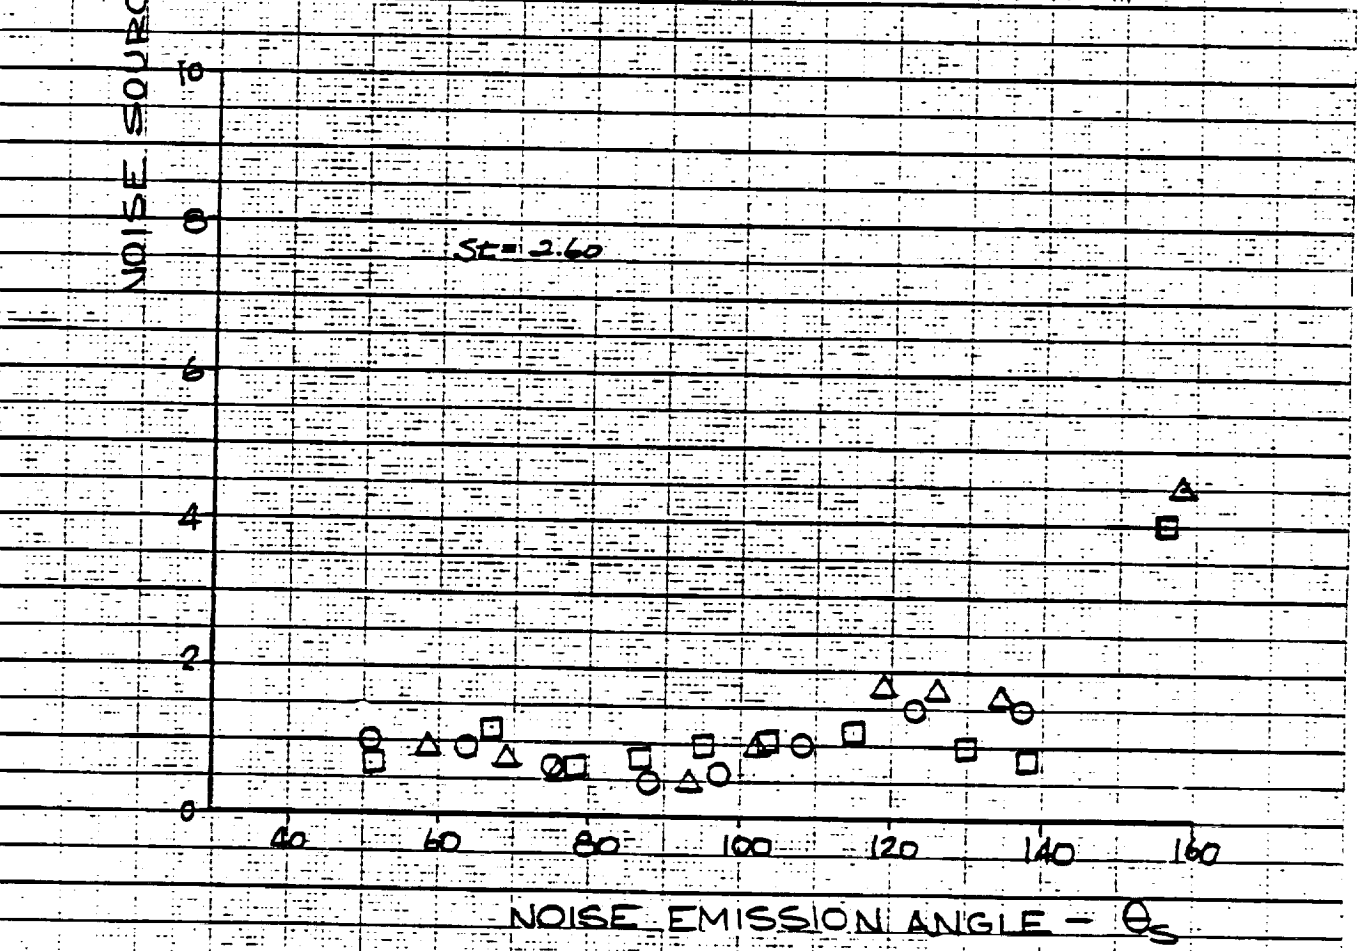 NOISE SOURC
10
8
St = 2.60
6
4
2
0
40 60 80 100 120 140 160
NOISE EMISSION ANGLE - θs